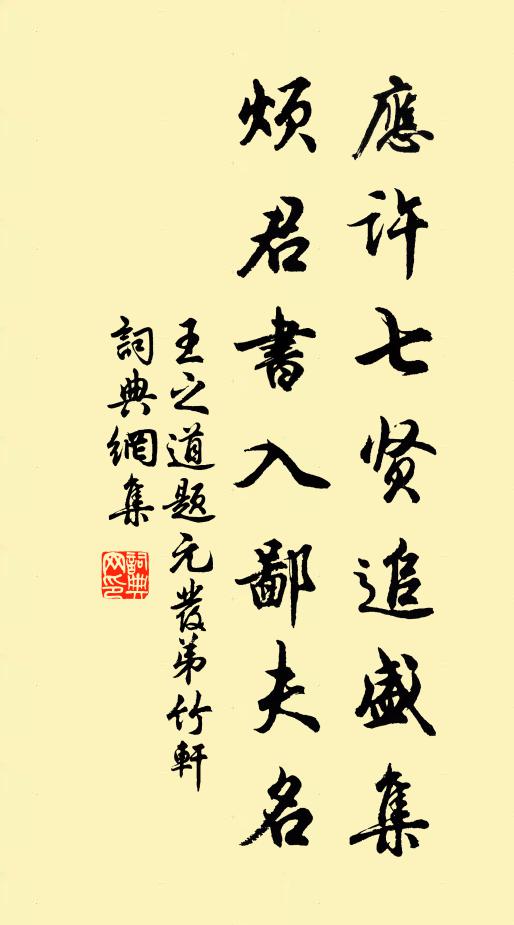 應許七贤追盛集
煩君書入鄙夫名
王之道题元發弟竹軒
詞典網集
詞典網印